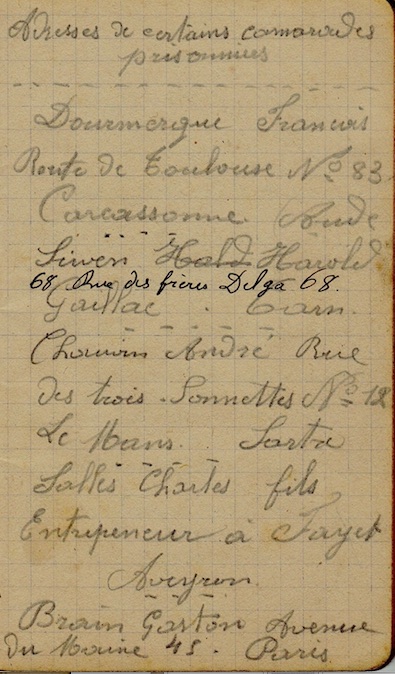 Adresses de certains camarades
prisonniers
Dourmergue Francis
Route de Toulouse Nº 83
Carcassonne Aude
Siwen Hald Harold
68, Rue des frères Delga 68.
Gaillac . Tarn.
Chauvin André Rue
des trois - Sonnettes Nº 12
Le Mans. Sarte
Salles Charles fils
Entrepeneur à Fayet
Aveyron.
Brain Gaston Avenue
du Maine 45. Paris.